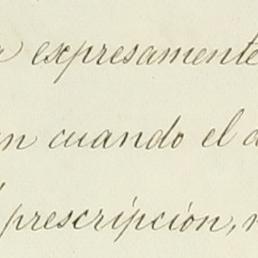 a expresamente
n cuando el d
prescripción, n